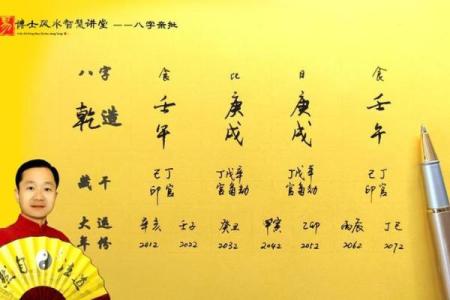 易 博士风水智慧讲堂 ——八字亲批
八字 食 比 日 食
乾造 壬午 庚戌 庚戌 壬午
藏干 己丁 丁戊辛 丁戊辛 己丁
印官 官枭劫 官枭劫 印官
大运 辛亥 壬子 癸丑 甲寅 乙卯 丙辰 丁巳
年份 2012 2022 2032 2042 2052 2062 2072